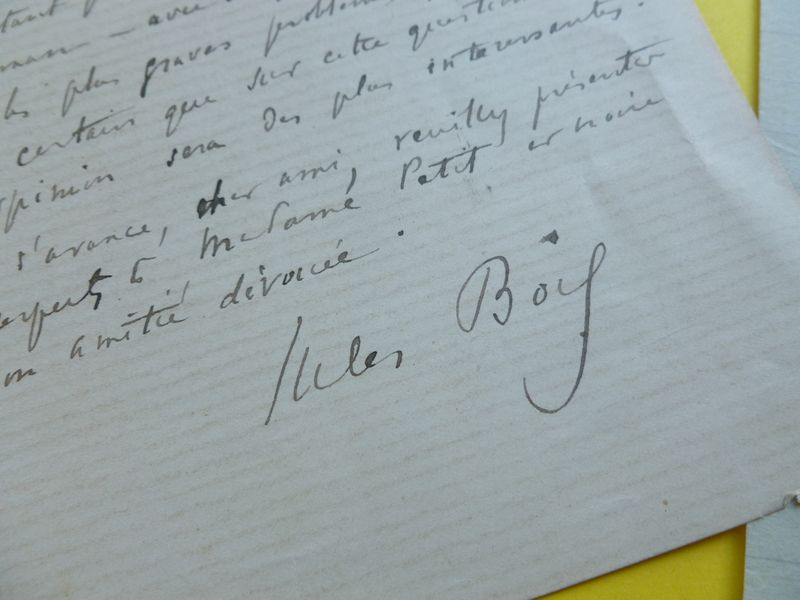 avec
les plus graves problèm
certain que sur cette question
opinion sera des plus intéressantes.
s'avance, cher ami, veuillez présenter
respects à Madame Petit et
on amitié dévouée.
Jules Boïs